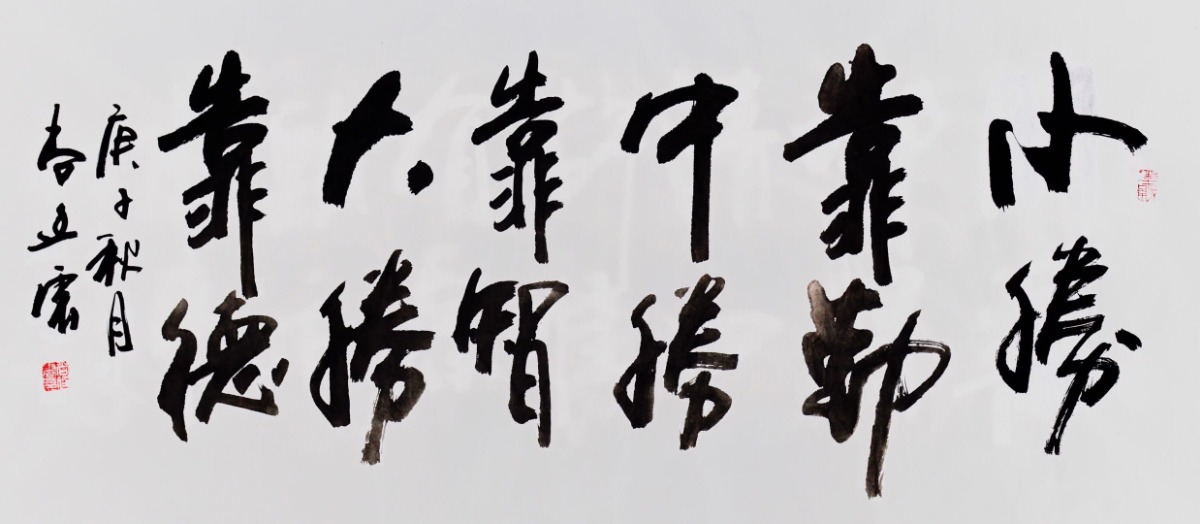 小勝
靠勤
中勝
靠智
大勝
靠德
庚子秋月